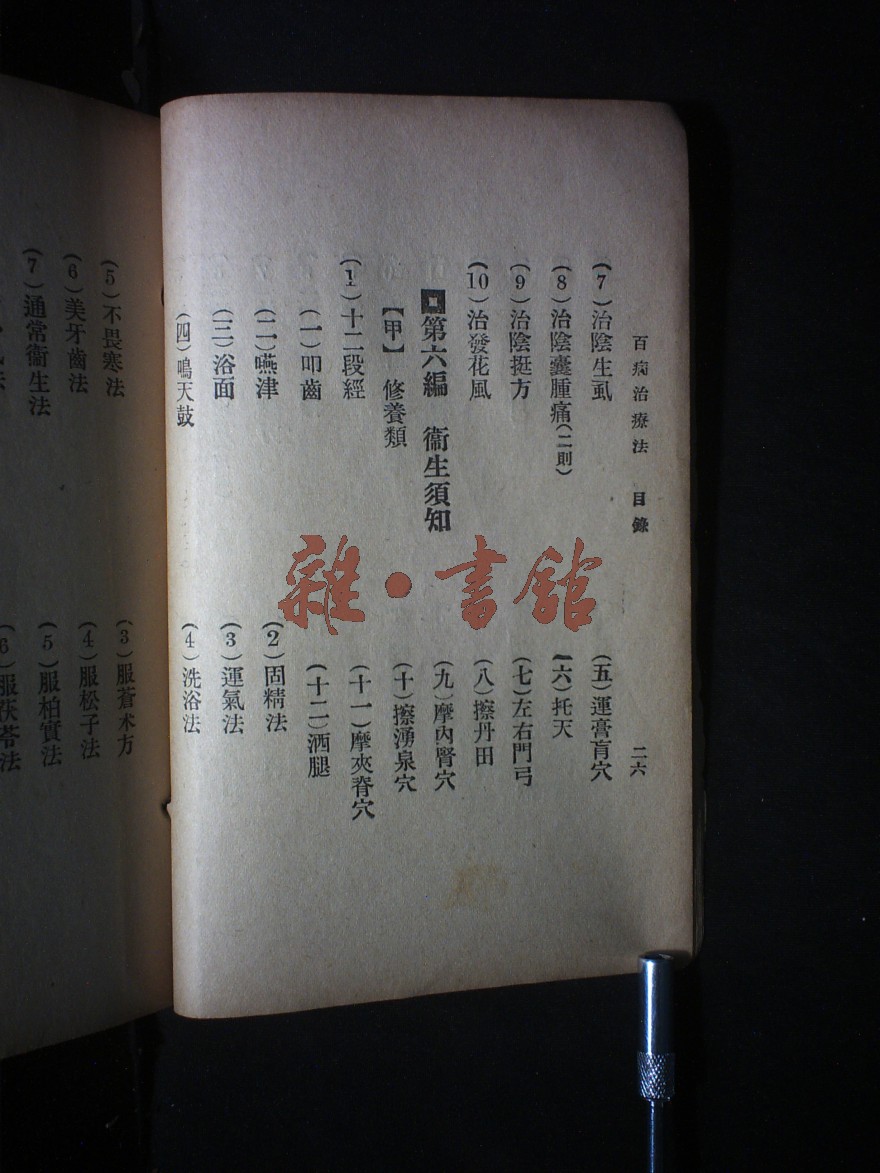 百病治療法 目錄 二六
(7)治陰生虱
(8)治陰囊腫痛(二則)
(9)治陰挺方
(10)治發花風
第六編 衞生須知
【甲】 修養類
(1)十二段經
(一)叩齒
(二)嚥津
(三)浴面
(四)鳴天鼓
(五)運膏肓穴
(六)托天
(七)左右門弓
(八)擦丹田
(九)摩內腎穴
(十)擦湧泉穴
(十一)摩夾脊穴
(十二)洒腿
(2)固精法
(3)運氣法
(4)洗浴法
(5)不畏寒法
(6)美牙齒法
(7)通常衞生法
(3)服蒼朮方
(4)服松子法
(5)服柏實法
(6)服茯苓法
雜·書館